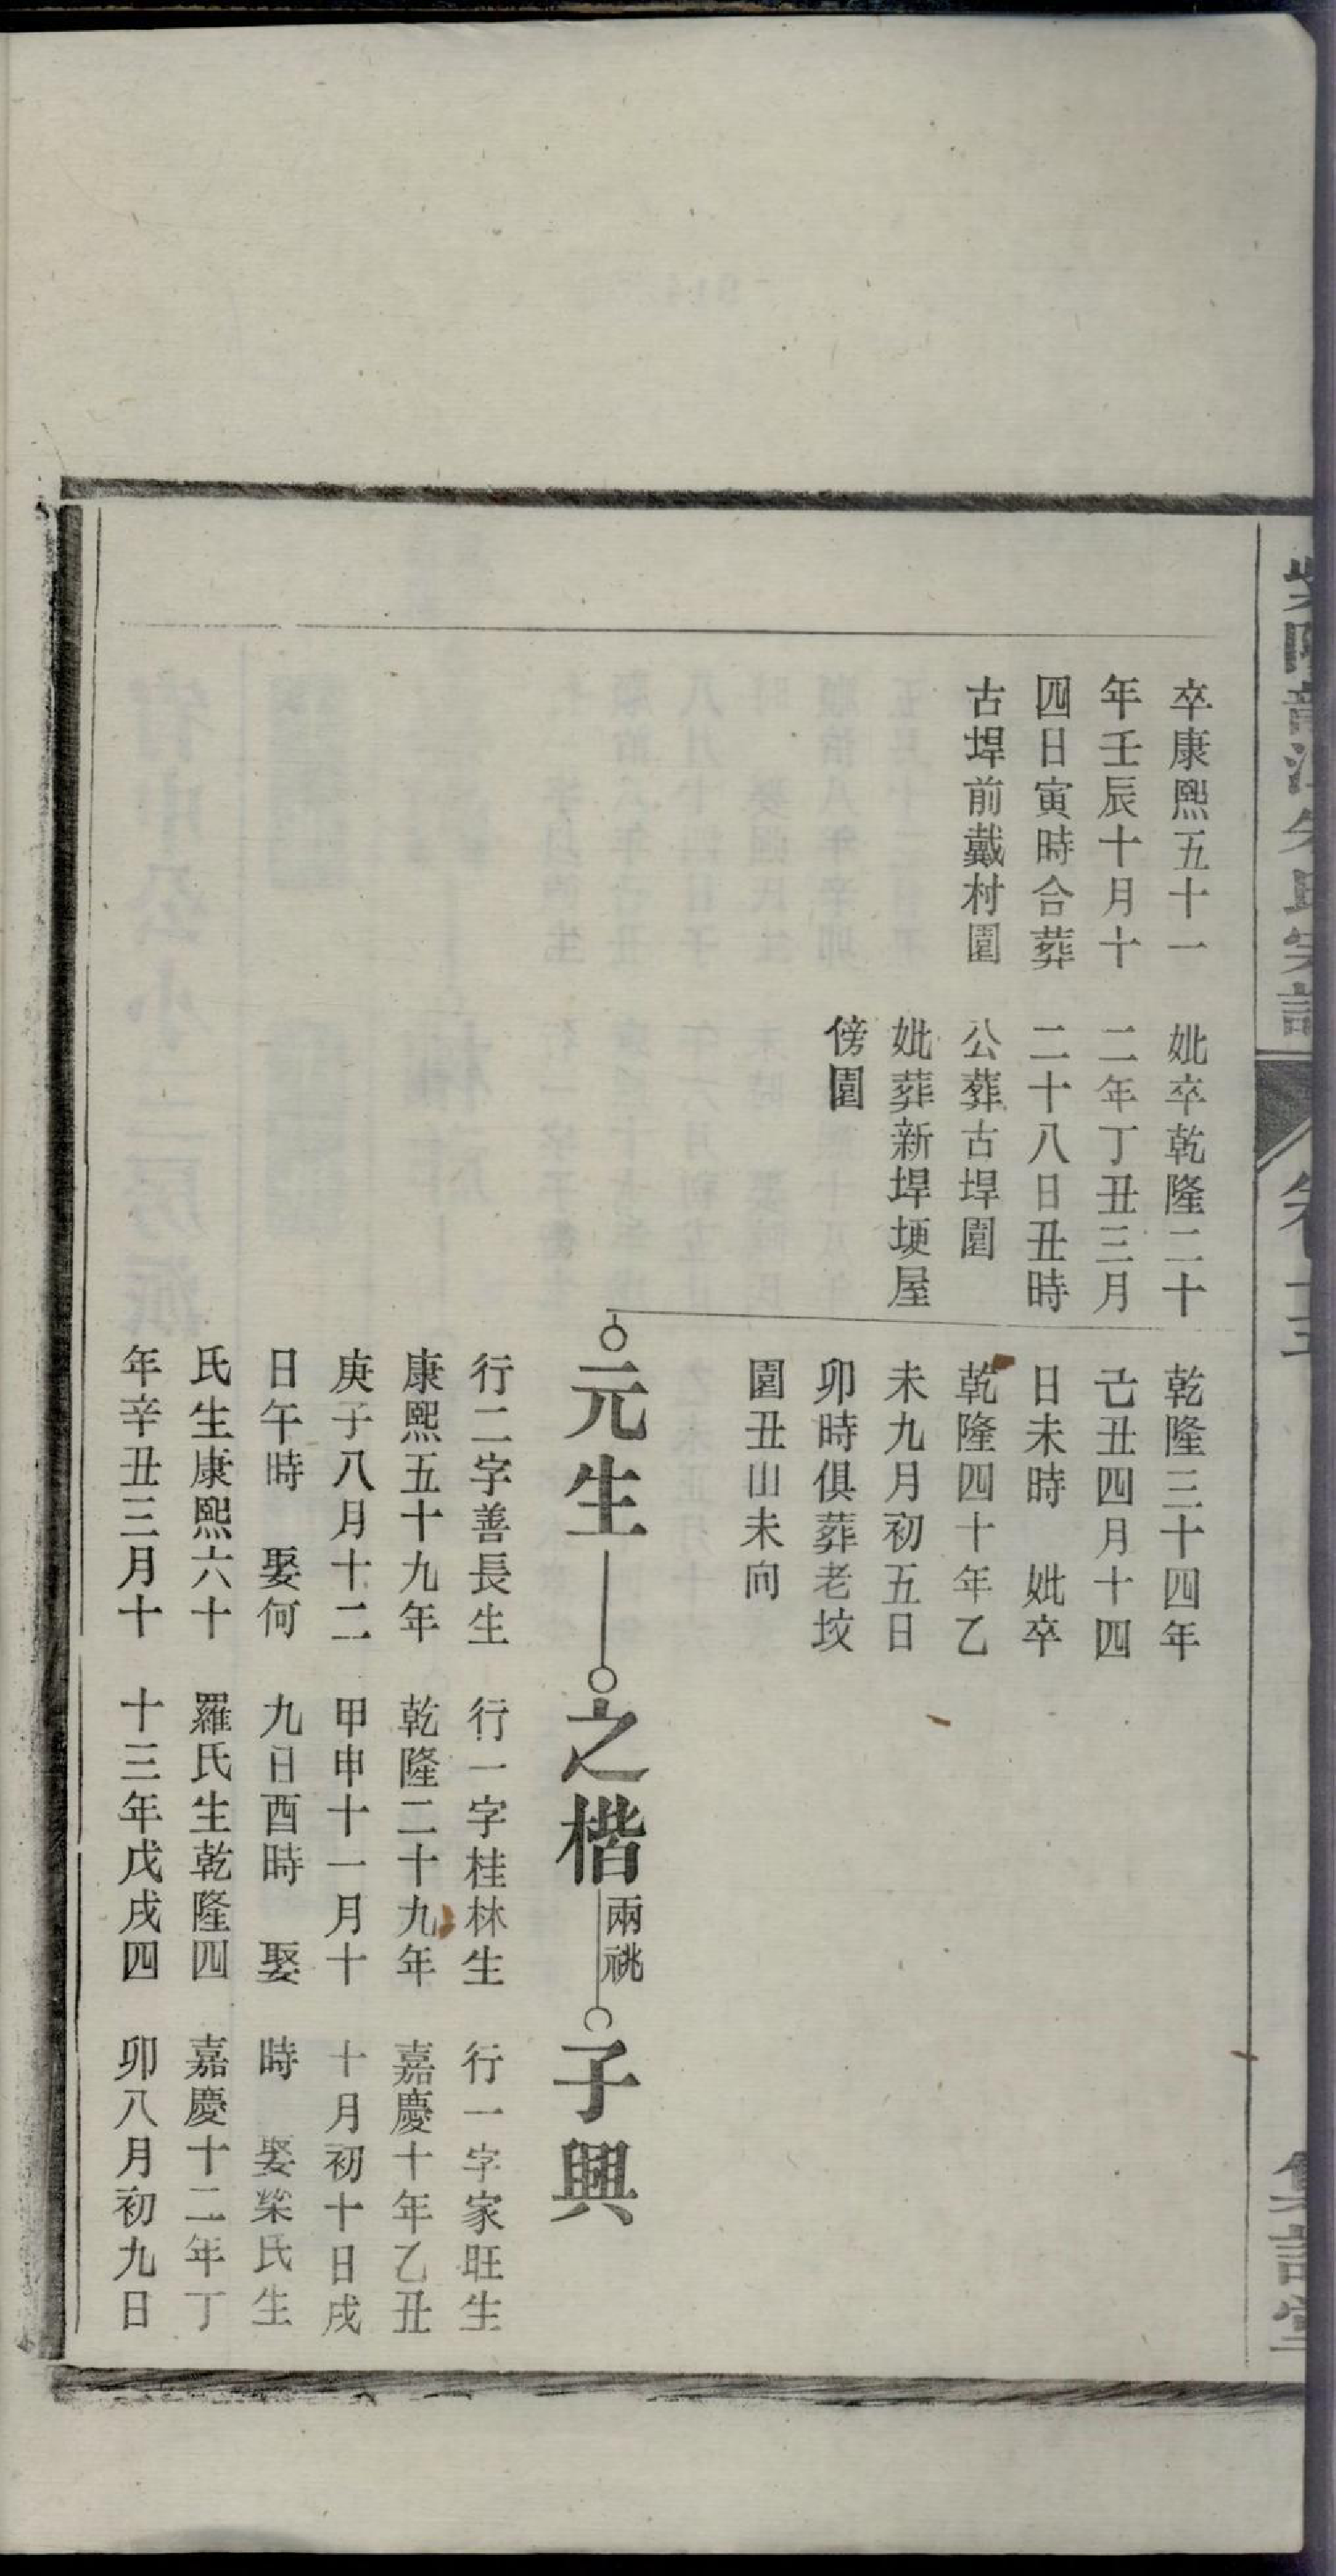 卒康熙五十一
年壬辰十月十
四日寅時合葬
古垾前戴村園
妣卒乾隆二十
二年丁丑三月
二十八日丑時
公葬古垾園
妣葬新垾埂屋
傍園
乾隆三十四年
己丑四月十四
日未時　妣卒
乾隆四十年乙
未九月初五日
卯時俱葬老坟
園丑山未向
元生
之楷
兩祧
子興
行二字善長生
康熙五十九年
庚子八月十二
日午時　娶何
氏生康熙六十
年辛丑三月十
行一字桂林生
乾隆二十九年
甲申十一月十
九日酉時　娶
羅氏生乾隆四
十三年戊戌四
行一字家旺生
嘉慶十年乙丑
十月初十日戌
時　娶柴氏生
嘉慶十二年丁
卯八月初九日